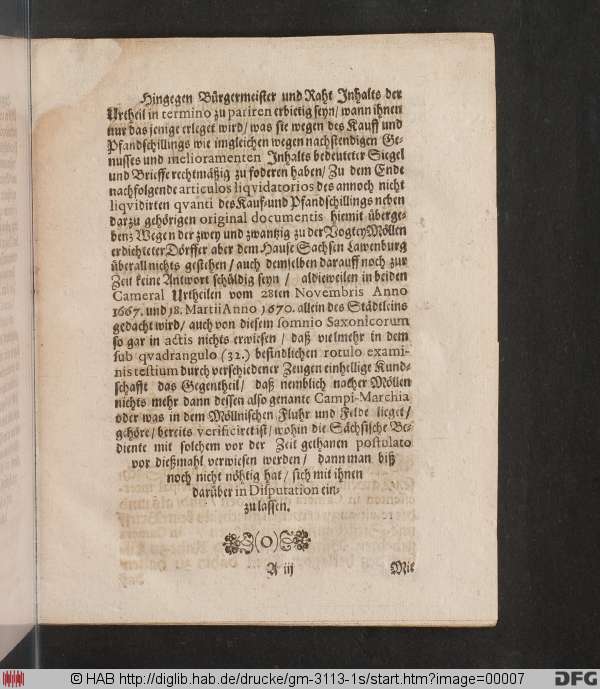 Hingegen Bürgermeister und Raht Inhalts der
Urtheil in termino zu pariren erbietig seyn/ wann ihnen
nur das jenige erleget wird/ was sie wegen des Kauff und
Pfandschillings wie imgleichen wegen nachstendigen Ge-
nusses und melioramenten Inhalts bedeuteter Siegel
und Brieffe rechtmäßig zu foderen haben/ Zu dem Ende
nachfolgende articulos liqvidatorios des annoch nicht
liqvidirten qvanti des Kauf-und Pfandschillings neben
darzu gehörigen original documentis hiemit überge-
ben; Wegen der zwey und zwantzig zu der Vogtey Möllen
erdichteter Dörffer aber dem Hause Sachsen Lawenburg
überall nichts gestehen/ auch demselben darauff noch zur
Zeit keine Antwort schüldig seyn/ aldieweilen in beiden
Cameral Urtheilen vom 28ten Novembris Anno
1667. und 18. Martii Anno 1670. allein des Städtleins
gedacht wird/ auch von diesem somnio Saxonicorum
so gar in actis nichts erwiesen/ daß vielmehr in dem
sub qvadrangulo (32.) befindlichen rotulo exami-
nis testium durch verschiedener Zeugen einhellige Kund-
schafft das Gegentheil/ daß nemblich nacher Möllen
nichts mehr dann dessen also genante Campi-Marchia
oder was in dem Möllnischen Fluhr und Felde lieget/
gehöre/ bereits verificiret ist/ wohin die Sächsische Be-
diente mit solchem vor der Zeit gethanen postulato
vor dießmahl verwiesen werden/ dann man biß
noch nicht nöhtig hat/ sich mit ihnen
darüber in Disputation ein-
zulassen.
(o)
A iij Mie
© HAB http://diglib.hab.de/drucke/gm-3113-1s/start.htm?image=00007
DFG